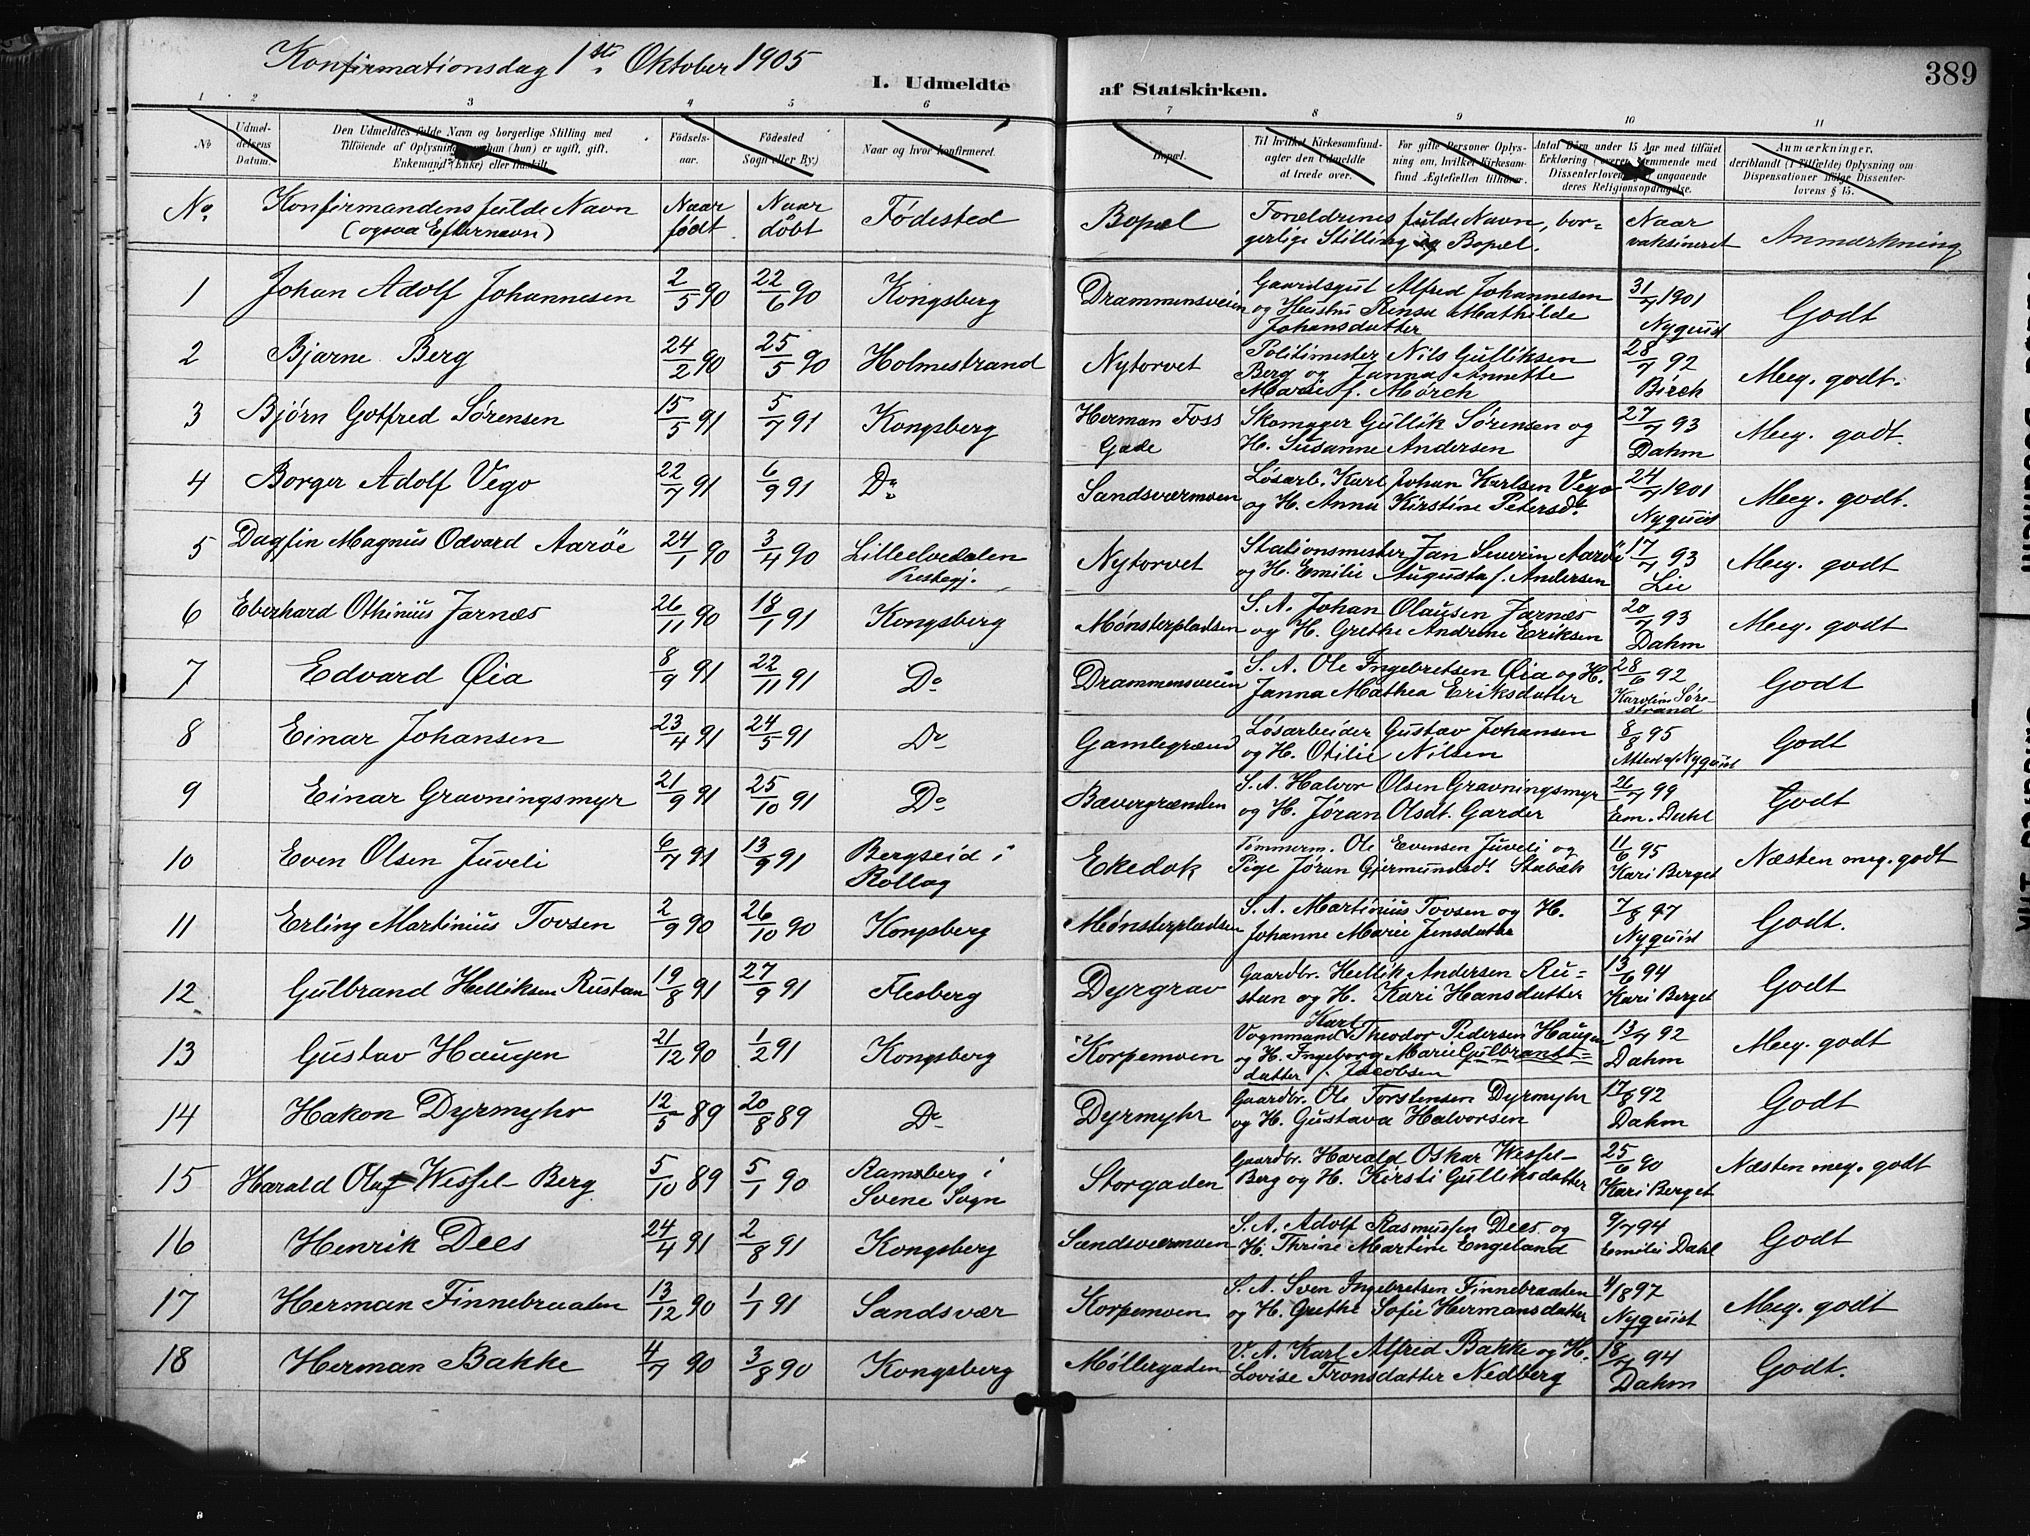 Konfirmationsdag 1ste Oktober 1905
I. Udmeldte af Statskirken. 389
1 2 3 4 5 6 7 8 9 10 11
No Udmeldelsens Datum. Den Udmeldtes fulde Navn og borgerlige Stilling med Tilføiende af Oplysning om han (hun) er ugift, gift, Enkemand (Enke) eller fraskilt. Fødselsaar. Fødested (Sogn eller By) Naar og hvor konfirmeret. Bopæl. Til hvilket Kirkesamfund agter den Udmeldte at træde over. For gifte Personer Oplysning om, hvilket Kirkesamfund Ægtefællen tilhører. Antal Børn under 15 Aar med tilføiet Erklæring (overensstemmende med Dissenterloven) angaaende deres Religionsopdragelse. Anmærkninger, deriblandt (i Tilfælde) Oplysning om Dispensationer ifølge Dissenterlovens § 15.
No Konfirmandens fulde Navn (ogsaa Efternavn) Naar født Naar døbt Fødested Bopæl Forældrenes fulde Navn, borgerlige Stilling og Bopæl. Naar vaksineret Anmærkning
1 Johan Adolf Johannesen 2/5 90 22/6 90 Kongsberg Drammensveien Gaardsgut Alfred Johannesen og Hustru Rensa Mathilde Johansdatter 31/7 1901 Nyquist Godt
2 Bjarne Berg 24/2 90 25/5 90 Holmestrand Nytorvet Politimester Nils Gulliksen Berg og Janna Annette Marie f. Mørch 28/7 92 Birch Meg. godt.
3 Bjørn Gotfred Sørensen 15/5 91 5/7 91 Kongsberg Herman Foss Gade Skomager Gullik Sørensen og H. Susanne Andersen 27/7 93 Dahm Meg. godt.
4 Borger Adolf Vego 22/7 91 6/9 91 Do Sandsværmoen Løsarb. Karl Johan Karlsen Vego og H. Anna Kirstine Petersdt. 24/7 1901 Nyquist Meg. godt.
5 Dagfin Magnus Odvard Aarøe 24/1 90 3/4 90 Lilleelvedalen Prestegj. Nytorvet Stationsmester Jan Severin Aarøe og H. Emilie Augusta f. Andersen 17/7 93 Lie Meg. godt
6 Eberhard Othinius Jarnæs 26/11 90 18/1 91 Kongsberg Mønsterpladsen S. A. Johan Olausen Jarnæs og H. Grethe Andrine Eriksen 20/7 93 Dahm Meg. godt
7 Edvard Øia 8/9 91 22/11 91 Do Drammensveien S. A. Ole Ingebretsen Øia og H. Janna Mathea Eriksdatter 28/6 92 Karoline Sørestrand Godt
8 Einar Johansen 23/4 91 24/5 91 Do Gamlegrænd Løsarbeider Gustav Johansen og H. Otilie Nilsen 8/8 95 Attest af Nyquist Godt
9 Einar Gravningsmyr 21/9 91 25/10 91 Do Bævergrænden S. A. Halvor Olsen Gravningsmyr og H. Jøran Olsdt. Garder 26/7 99 Em. Dahl Godt
10 Even Olsen Juveli 6/7 91 13/9 91 Bergseid i Rollag Ekedok Tømmerm. Ole Evensen Juveli og Pige Jøran Gjermundsdt. Stabæk 11/6 95 Kari Berget Næsten meg. godt
11 Erling Martinius Tovsen 2/9 90 26/10 90 Kongsberg Mønsterpladsen S. A. Martinius Tovsen og H. Johanne Marie Jensdatter 7/8 97 Nyquist Godt.
12 Gulbrand Helliksen Rustan 19/8 91 27/9 91 Flesberg Dyrgrav Gaardbr. Hellik Andersen Rustan og H. Kari Hansdatter 13/6 94 Kari Berget Godt
13 Gustav Haugen 21/12 90 1/2 91 Kongsberg Korpemoen Vognmand Karl Theodor Pedersen Haugen og H. Ingeborg Marie Gulbrandtdatter f. Jacobsen 13/7 92 Dahm Meg. godt
14 Hakon Dyrmyhr 12/5 89 20/8 89 Do Dyrmyhr Gaardbr. Ole Torstensen Dyrmyhr og H. Gustava Halvorsen 17/8 92 Dahm Godt
15 Harald Olaf Wessel-Berg 5/10 89 5/1 90 Ramsberg i Svene Sogn Storgaden Gaardbr. Harald Oskar Wessel-Berg og H. Kirsti Gulliksdatter 25/6 90 Kari Berget Næsten meg. godt
16 Henrik Dees 24/4 91 2/8 91 Kongsberg Sandsværmoen S. A. Adolf Rasmussen Dees og H. Thrine Martine Engeland 9/7 94 Emilie Dahl Godt
17 Herman Finnebraaten 13/12 90 1/1 91 Sandsvær Korpemoen S. A. Sven Ingebretsen Finnebraaten og H. Grethe Sofie Hermansdatter 4/8 97 Nyquist Meg. godt
18 Herman Bakke 4/7 90 3/8 90 Kongsberg Møllergaden V. A. Karl Alfred Bakke og H. Lovise Tronsdatter Nedberg 18/7 94 Dahm Godt.